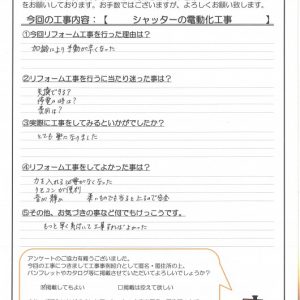 をお願いしております。お手数ではございますが、よろしくお願い致します。
今回の工事内容：【 シャッターの電動化工事 】
①今回リフォーム工事を行った理由は？
加齢により手動が辛くなった
②リフォーム工事を行うに当たり迷った事は？
交換できる？
停電の時は？
費用は？
③実際に工事をしてみるといかがでしたか？
とても楽になりました
④リフォーム工事をしてよかった事は？
力を入れる必要がなくなった
リモコンが便利
音が静か
⑤その他、お気づきの事など何でもけっこうです。
もっと早く気付いて工事すればよかった
アンケートのご協力有難うございました。
今回の工事につきまして工事事例紹介として匿名・居住所の上、
パンフレットやカタログ等に掲載させていただいてよろしいでしょうか？
掲載してもよい □掲載は控えて欲しい